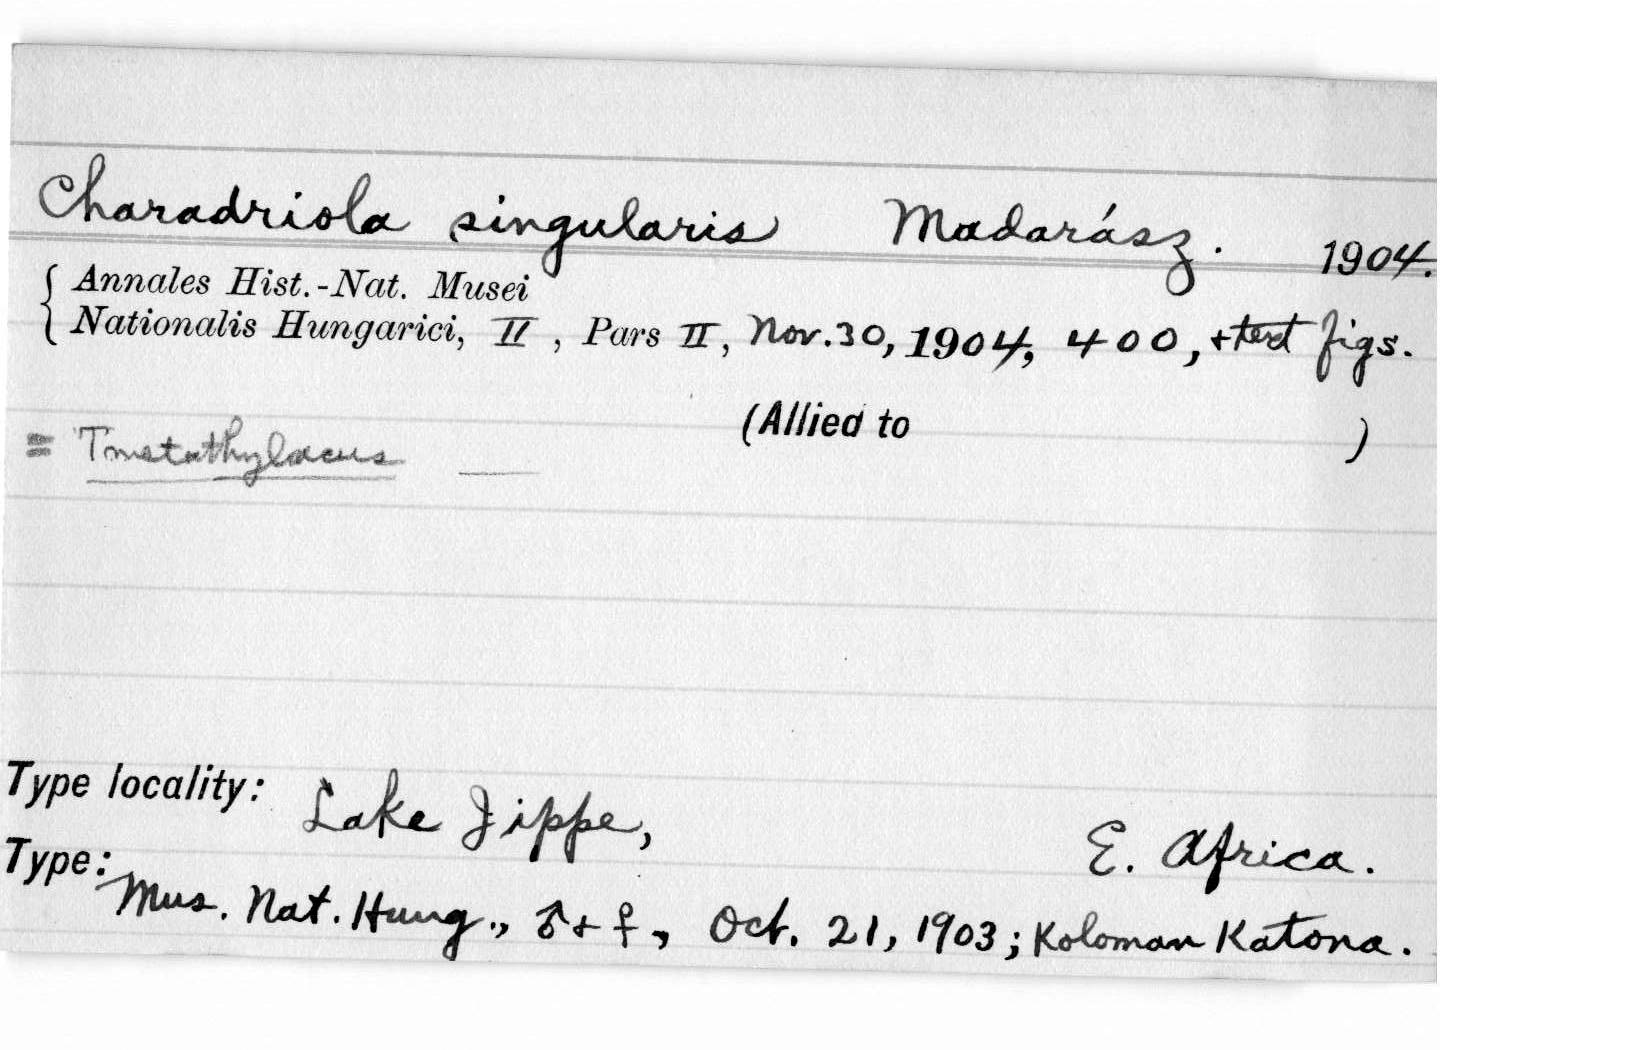 Charadriola singularis Madarász. 1904.
{ Annales Hist.-Nat. Musei
Nationalis Hungarici, II, Pars II, Nov. 30, 1904, 400, + text figs.
(Allied to )
= Tmetothylacus
Type locality: Lake Jippe, E. Africa.
Type: Mus. Nat. Hung., ♂ + ♀, Oct. 21, 1903; Koloman Katona.